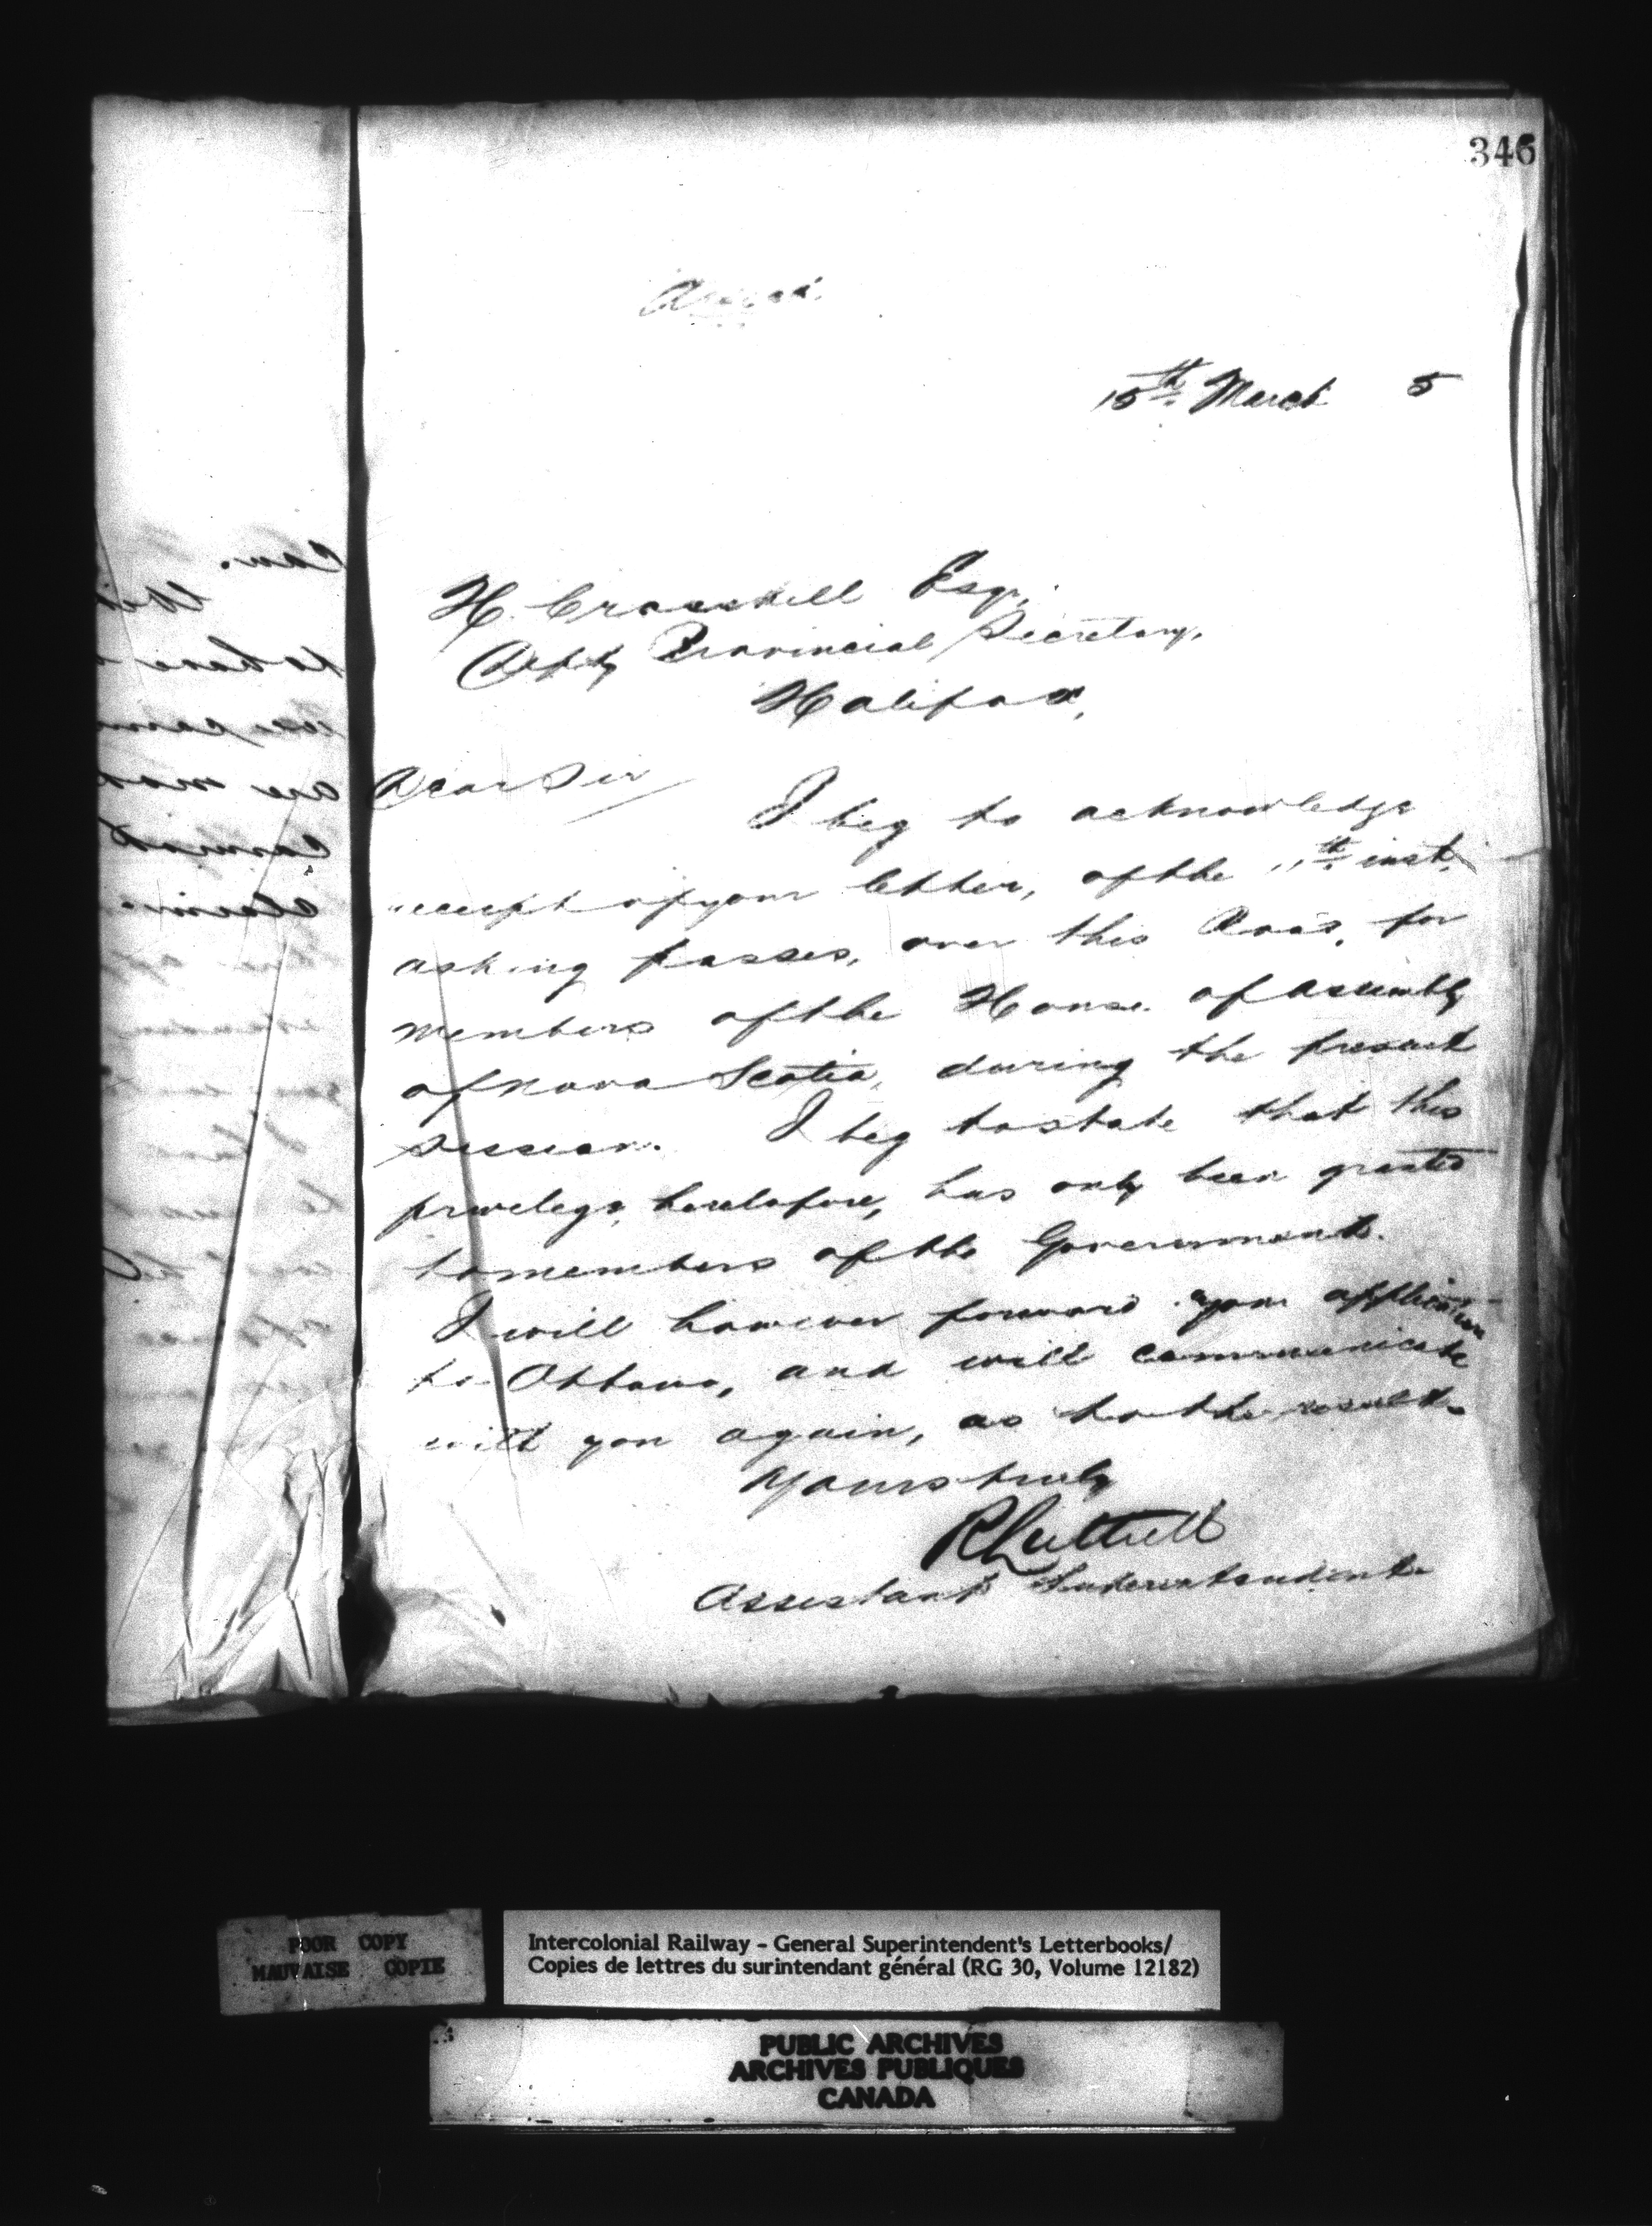 346
15th March 5
H. Crosskill Esqr,
Depty Provincial Secretary,
Halifax,
Dear Sir
I beg to acknowledge
receipt of your letter, of the 11th inst,
asking passes, over this Road, for
members of the House of Assembly
of Nova Scotia, during the present
session. I beg to state that this
privelege, heretofore, has only been granted
to members of the Government.
I will however forward your application
to Ottawa, and will communicate
with you again, as to the result.
Yours truly
R Luttrell
Assistant Superintendent
POOR COPY
MAUVAISE COPIE
Intercolonial Railway - General Superintendent's Letterbooks/
Copies de lettres du surintendant général (RG 30, Volume 12182)
PUBLIC ARCHIVES
ARCHIVES PUBLIQUES
CANADA